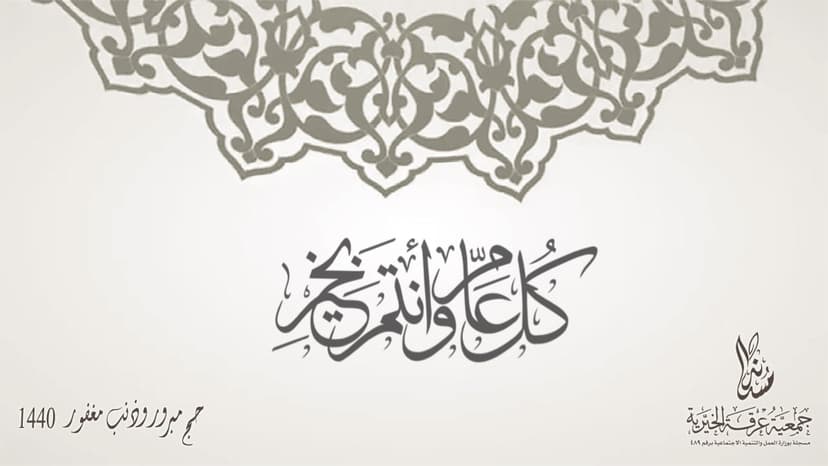 كل عام وأنتم بخير
حج مبرور وذنب مغفور 1440
جمعية عرقة الخيرية
مسجلة بوزارة العمل والتنمية الاجتماعية برقم ٤٨٩